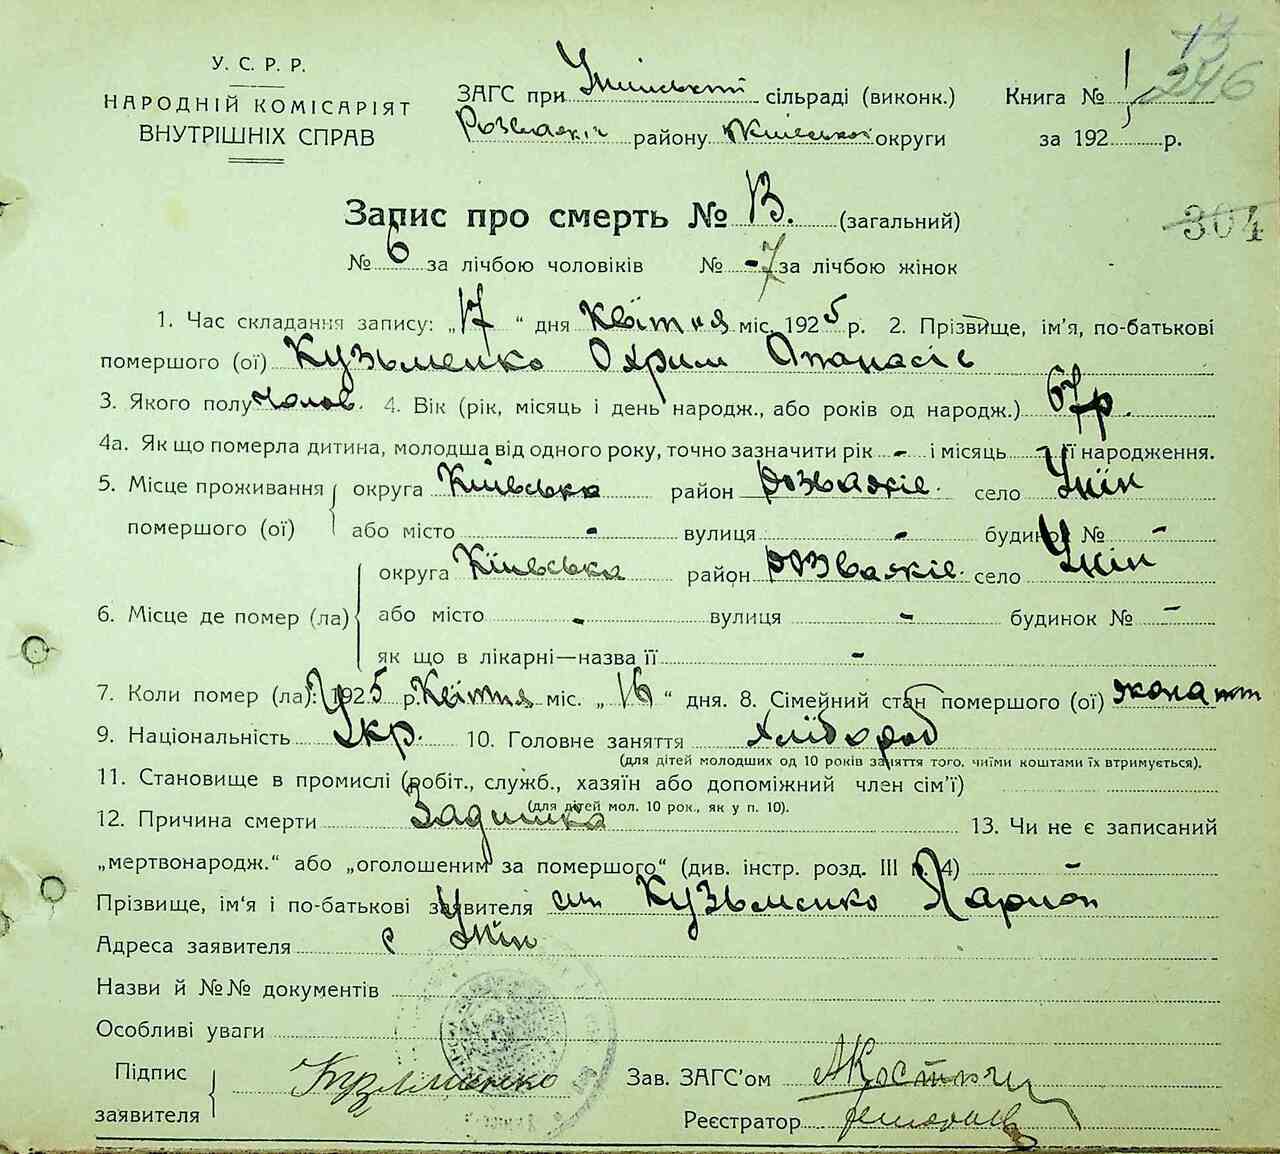 13
246
У. С. Р. Р.
НАРОДНІЙ КОМІСАРІЯТ
ВНУТРІШНІХ СПРАВ
ЗАГС при сільраді (виконк.)
району Київської округи
Книга №
за 192 р.
Запис про смерть № 13. (загальний)
304
№ 6 за лічбою чоловіків № -7 за лічбою жінок
1. Час складання запису: „17“ дня Квітня міс. 1925 р. 2. Прізвище, ім'я, по-батькові
помершого (ої) Кузьменко Охрим Опанасів
3. Якого полу чолов. 4. Вік (рік, місяць і день народж., або років од народж.) 67 р.
4а. Як що померла дитина, молодша від одного року, точно зазначити рік - і місяць - її народження.
5. Місце проживання помершого (ої)
округа Київська район Розважів. село Унін
або місто - вулиця - будинок № -
6. Місце де помер (ла)
округа Київська район Розважів. село Унін
або місто - вулиця - будинок № -
як що в лікарні—назва її -
7. Коли помер (ла): 1925 р. Квітня міс. „16“ дня. 8. Сімейний стан помершого (ої) жонатт
9. Національність Укр. 10. Головне заняття Хлібороб
(для дітей молодших од 10 років заняття того, чиїми коштами їх втримується).
11. Становище в промислі (робіт., служб., хазяїн або допоміжний член сім'ї)
(для дітей мол. 10 рок., як у п. 10).
12. Причина смерти Задишка 13. Чи не є записаний
„мертвонародж.“ або „оголошеним за помершого“ (див. інстр. розд. III п. 4)
Прізвище, ім'я і по-батькові заявителя син Кузьменко Ларион
Адреса заявителя с Унін
Назви й №№ документів
Особливі уваги
Підпис заявителя Кузьменко Зав. ЗАГС'ом
Реєстратор